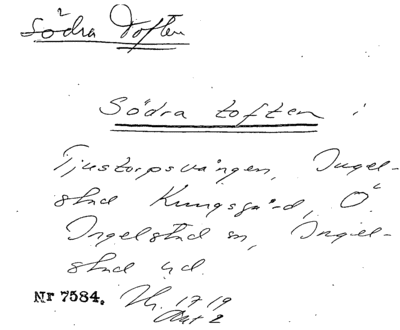 Södra Toften
Södra toften i
Tjustorpsvången, Ingel-
stad Kungsgård, Ö.
Ingelstad sn, Ingel-
stad hd.
Nr 7584. 1719
Akt 2